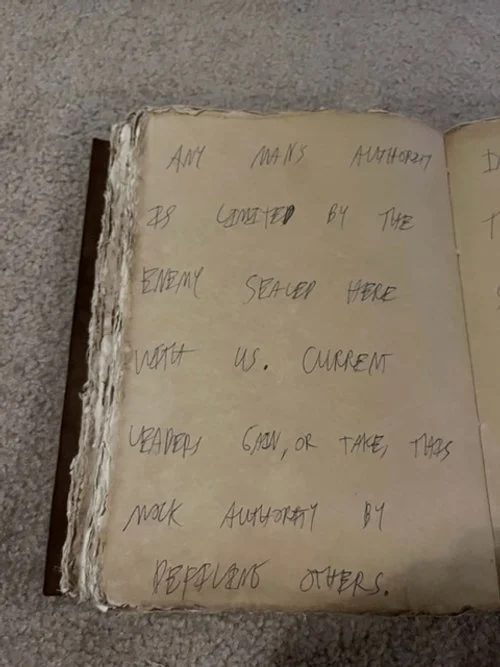 ANY MAN'S AUTHORITY
IS LIMITED BY THE
ENEMY SEALED HERE
WITH US. CURRENT
LEADERS GAIN, OR TAKE, THIS
MOCK AUTHORITY BY
DEFILING OTHERS.